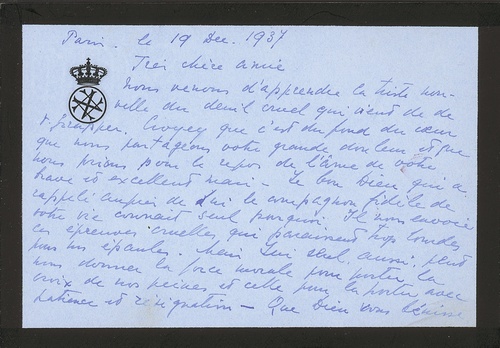 Paris. le 19 Dec. 1937
Très chère amie
Nous venons d'apprendre la triste nou-
velle du deuil cruel qui vient de
frapper. Croyez que c'est du fond du cœur
que nous partageons votre grande douleur et que
nous prions pour le repos de l'âme de votre
brave et excellent mari - le bon Dieu qui a
rappelé auprès de Lui le compagnon fidèle de
votre vie connait seul pourquoi Il nous envoie
ces épreuves cruelles qui paraissent trop lourdes
pour nos épaules. Mais Lui seul aussi, peut
nous donner la force morale pour porter la
croix de nos peines et celle pour la porter avec
patience et résignation - Que Dieu vous bénisse